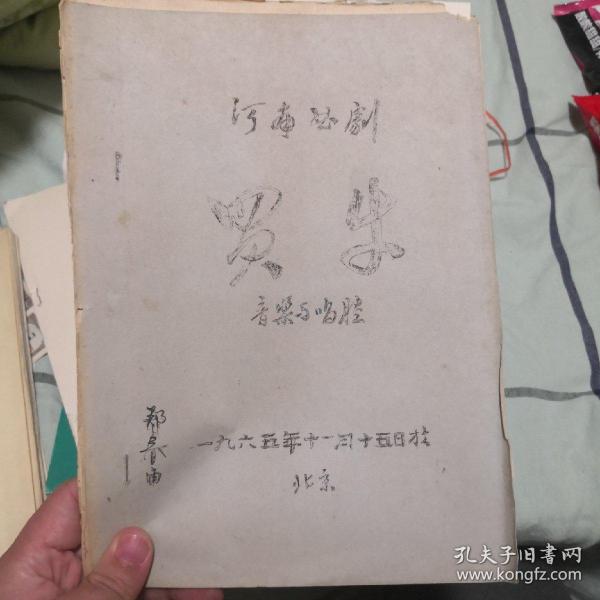 河南曲劇
買牛
音樂与唱腔
一九六五年十一月十五日於
北京
孔夫子旧書网
www.kongfz.com